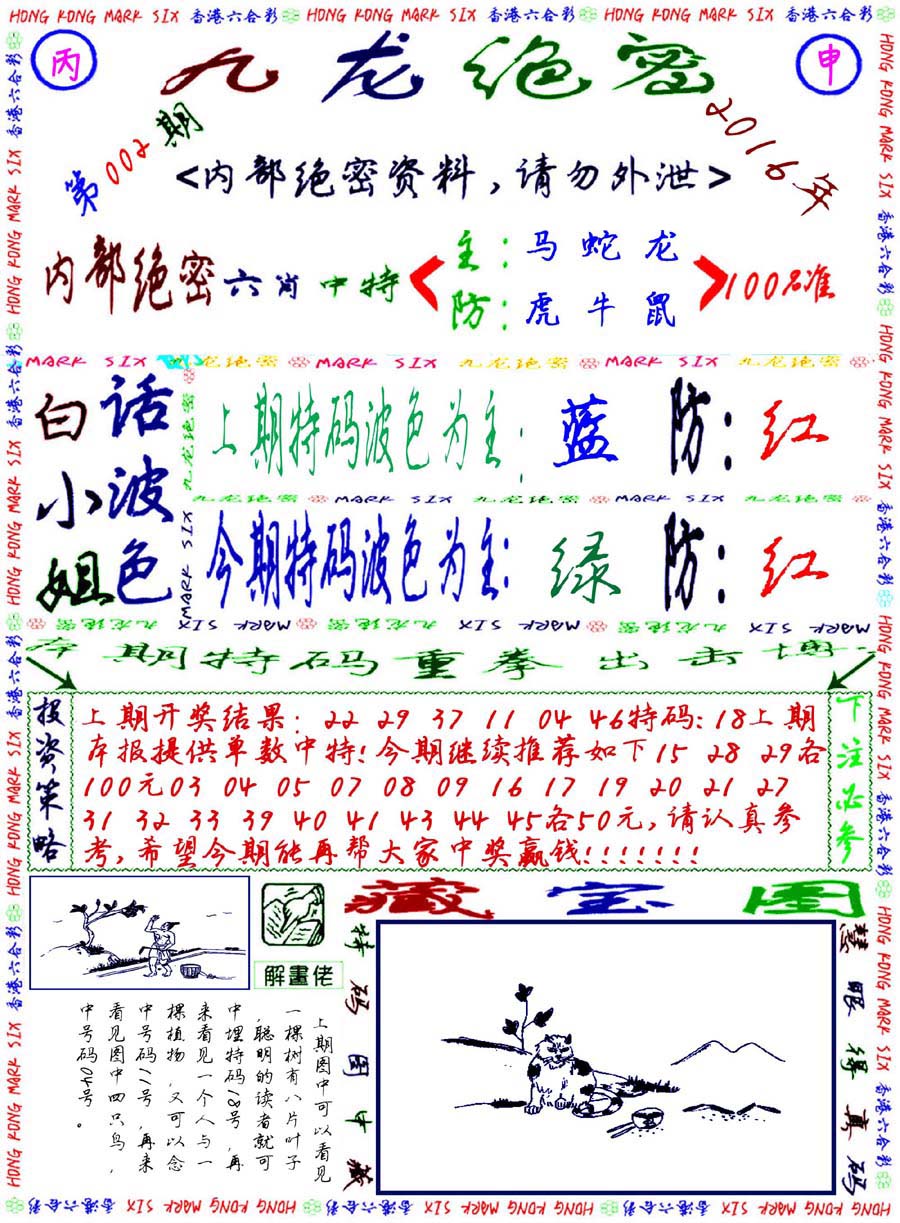 HONG KONG MARK SIX 香港六合彩 HONG KONG MARK SIX 香港六合彩 HONG KONG MARK SIX 香港六合彩
丙
九龙绝密
申
第002期
2016年
<内部绝密资料,请勿外泄>
内部绝密六肖中特
主:马蛇龙
防:虎牛鼠
100%准
MARK SIX 九龙绝密 MARK SIX 九龙绝密 MARK SIX 九龙绝密
白话
小波
姐色
上期特码波色为主:蓝 防:红
九龙绝密 MARK SIX 九龙绝密 MARK SIX 九龙绝密
今期特码波色为主:绿 防:红
九龙绝密 MARK SIX 九龙绝密 MARK SIX 九龙绝密 MARK SIX
本期特码重拳出击博
投资策略
上期开奖结果: 22 29 37 11 04 46特码:18上期
本报提供单数中特!今期继续推荐如下15 28 29各
100元03 04 05 07 08 09 16 17 19 20 21 27
31 32 33 39 40 41 43 44 45各50元,请认真参
考,希望今期能再帮大家中奖赢钱!!!!!!!
下注必参
藏宝图
解畫佬
上期图中可以看见
一棵树有八片叶子
,聪明的读者就可
中埋特码18号,再
来看见一个人与一
棵植物,又可以念
中号码11号,再来
看见图中四只鸟,
中号码04号。
特码图中藏
慧眼得真码
HONG KONG MARK SIX 香港六合彩 HONG KONG MARK SIX 香港六合彩 HONG KONG MARK SIX 香港六合彩